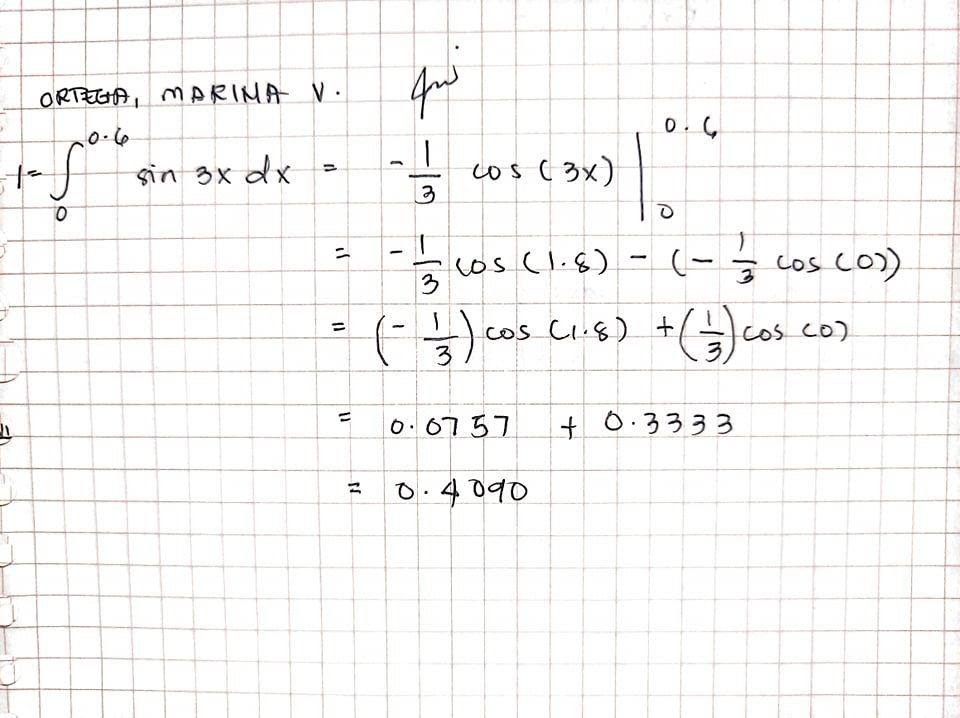 ORTEGA, MARINA V.
I = ∫₀^0.6 sin 3x dx = -1/3 cos (3x) |₀^0.6
= -1/3 cos (1.8) - (-1/3 cos (0))
= (-1/3) cos (1.8) + (1/3) cos (0)
= 0.0757 + 0.3333
= 0.4090